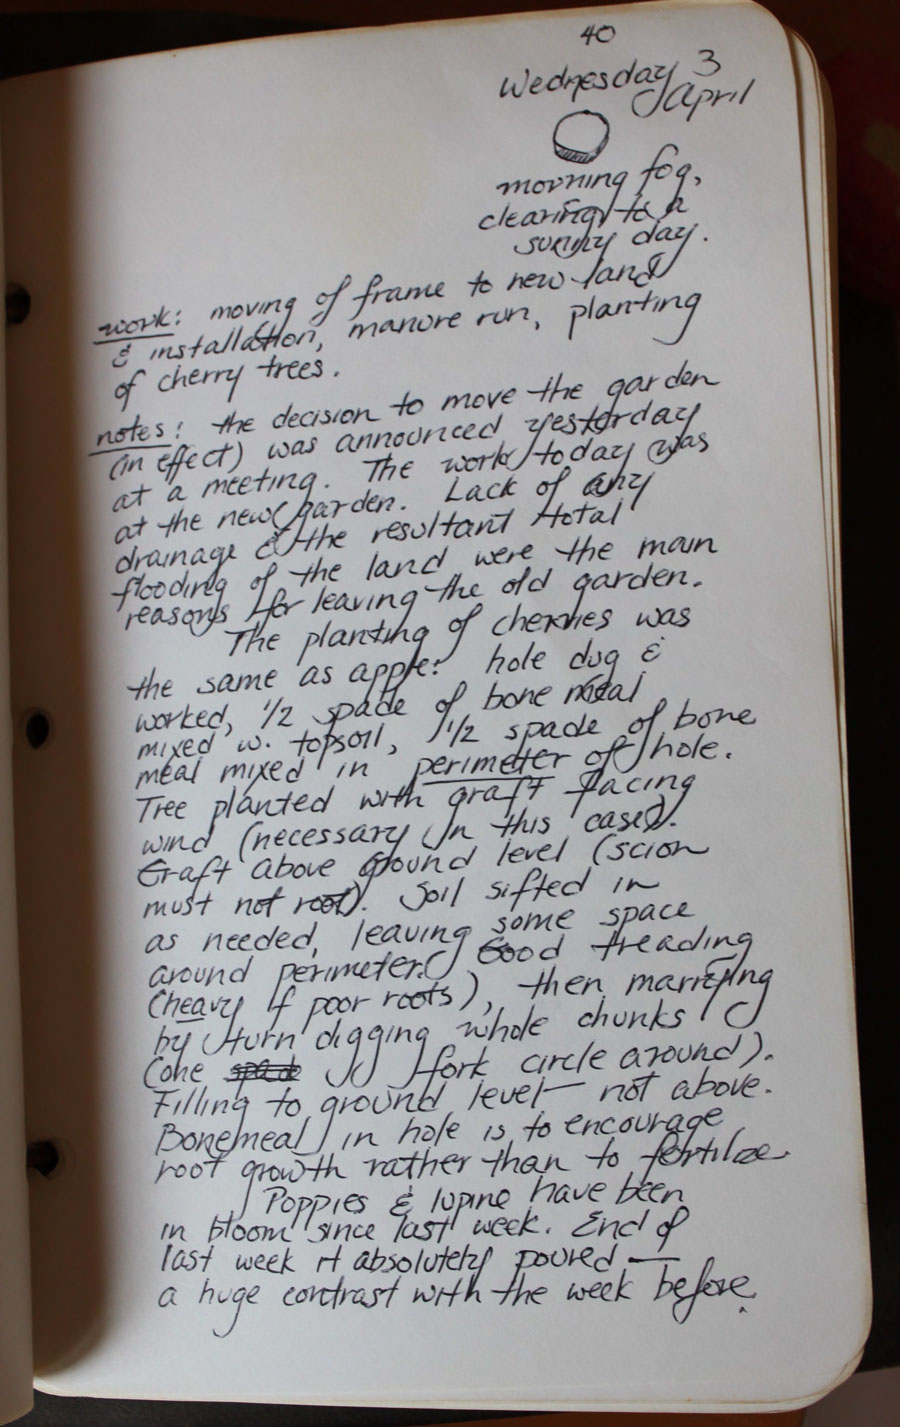 40
Wednesday 3
April
morning fog,
clearing to a
sunny day.
work: moving of frame to new land
& installation, manure run, planting
of cherry trees.
notes: the decision to move the garden
(in effect) was announced yesterday
at a meeting. The work today was
at the new garden. Lack of any
drainage & the resultant total
flooding of the land were the main
reasons for leaving the old garden.
The planting of cherries was
the same as apple: hole dug &
worked, 1/2 spade of bone meal
mixed w. topsoil, 1/2 spade of bone
meal mixed in perimeter of hole.
Tree planted with graft facing
wind (necessary in this case).
Graft above ground level (scion
must not root). Soil sifted in
as needed, leaving some space
around perimeter. Good treading
(heavy if poor roots), then marrying
by turn digging whole chunks
(one spade fork circle around).
Filling to ground level — not above.
Bonemeal in hole is to encourage
root growth rather than to fertilize.
Poppies & lupine have been
in bloom since last week. End of
last week it absolutely poured —
a huge contrast with the week before.